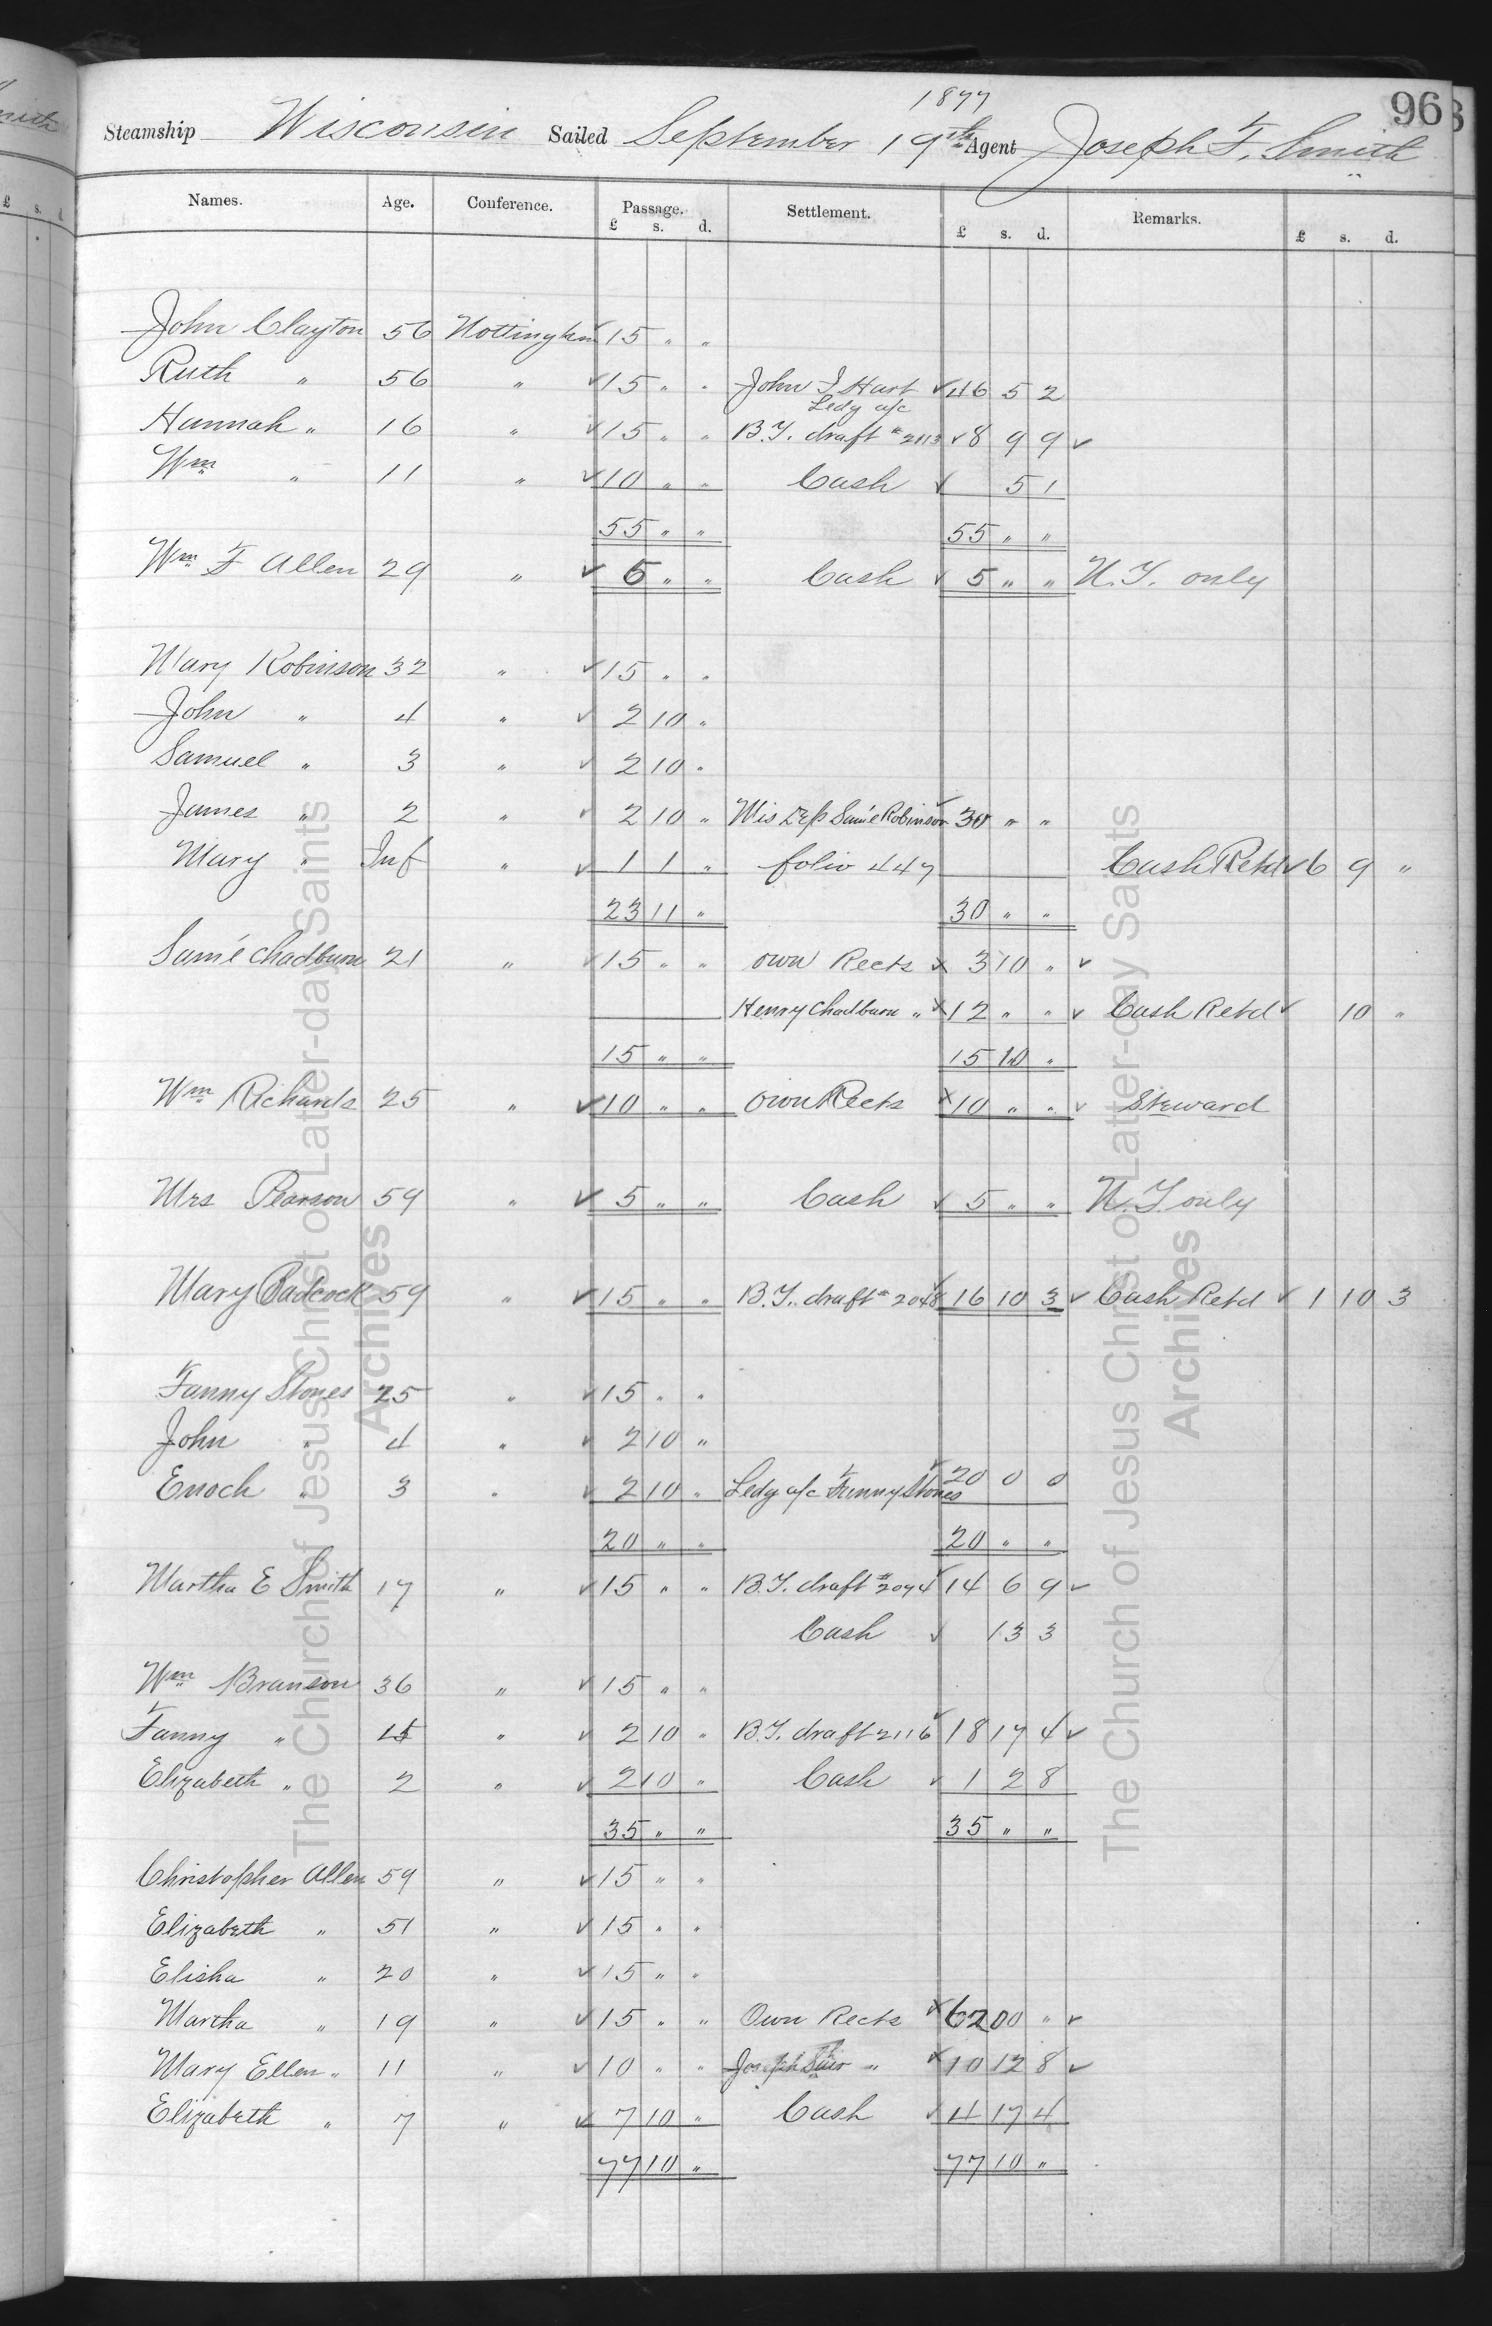 1877
96
Steamship Wisconsin Sailed September 19th Agent Joseph F. Smith
Names. Age. Conference. Passage. Settlement. Remarks.
£ s. d. £ s. d. £ s. d.
John Clayton 56 Nottingham ✓ 15 " "
Ruth " 56 " ✓ 15 " " John I Hart ✓ 46 5 2
Ledg a/c
Hannah " 16 " ✓ 15 " " B.Y. draft # 2113 ✓ 8 9 9 ✓
Wm " 11 " ✓ 10 " " Cash ✓ 5 1
55 " " 55 " "
Wm F Allen 29 " ✓ 5 " " Cash ✓ 5 " " N.Y. only
Mary Robinson 32 " ✓ 15 " "
John " 4 " ✓ 2 10 "
Samuel " 3 " ✓ 2 10 "
James " 2 " ✓ 2 10 " Mis Dep Saml Robinson ✓ 30 " "
Mary " Inf " ✓ 1 1 " folio 447 Cash Retd ✓ 6 9 "
23 11 " 30 " "
Saml Chadburn 21 " ✓ 15 " " own Rects x 3 10 " ✓
Henry Chadburn " x 12 " " ✓ Cash Retd ✓ 10 "
15 " " 15 10 "
Wm Richards 25 " ✓ 10 " " own Rects x 10 " " ✓ Steward
Mrs Pearson 59 " ✓ 5 " " Cash ✓ 5 " " N.Y. only
Mary Badcock 59 " ✓ 15 " " B.Y. draft # 2048 ✓ 16 10 3 ✓ Cash Retd ✓ 1 10 3
Fanny Stones 25 " ✓ 15 " "
John " 4 " ✓ 2 10 "
Enoch " 3 " ✓ 2 10 " Ledg a/c Fanny Stones ✓ 20 0 0
20 " " 20 " "
Martha E Smith 17 " ✓ 15 " " B.Y. draft # 2074 ✓ 14 6 9 ✓
Cash ✓ 13 3
Wm Branson 36 " ✓ 15 " "
Fanny " " ✓ 2 10 " B.Y. draft 2116 ✓ 18 17 4 ✓
Elizabeth " 2 " ✓ 2 10 " Cash ✓ 1 2 8
35 " " 35 " "
Christopher Allen 59 " ✓ 15 " "
Elizabeth " 51 " ✓ 15 " "
Elisha " 20 " ✓ 15 " "
Martha " 19 " ✓ 15 " " Own Rects x 62 00 " ✓
Mary Ellen " 11 " ✓ 10 " " Joseph " x 10 12 8 ✓
Elizabeth " 7 " ✓ 7 10 " Cash ✓ 4 17 4
77 10 " 77 10 "
The Church of Jesus Christ of Latter-day Saints
Archives
The Church of Jesus Christ of Latter-day Saints
Archives